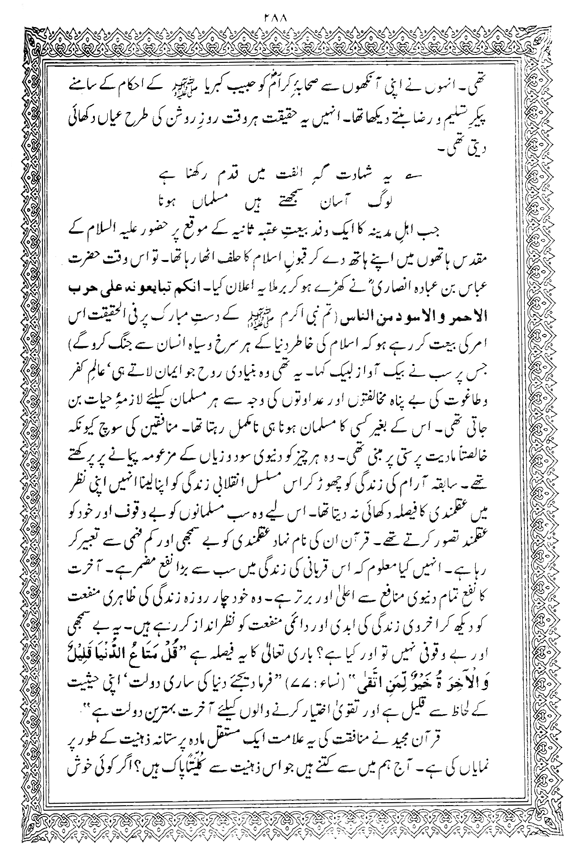 ۲۸۸
تھی۔ انہوں نے اپنی آنکھوں سے صحابۂ کرامؓ کو حبیب کبریا ﷺ کے احکام کے سامنے
پیکرِ تسلیم و رضا بنتے دیکھا تھا۔ انہیں یہ حقیقت ہر وقت روزِ روشن کی طرح عیاں دکھائی
دیتی تھی۔
؎ یہ شہادت گہِ الفت میں قدم رکھنا ہے
لوگ آسان سمجھتے ہیں مسلماں ہونا
جب اہلِ مدینہ کا ایک وفد بیعتِ عقبہ ثانیہ کے موقع پر حضور علیہ السلام کے
مقدس ہاتھوں میں اپنے ہاتھ دے کر قبولِ اسلام کا حلف اٹھا رہا تھا۔ تو اس وقت حضرت
عباس بن عبادہ انصاریؓ نے کھڑے ہو کر برملا یہ اعلان کیا۔ انکم تبایعونہ علی حرب
الاحمر والاسود من الناس (تم نبی اکرم ﷺ کے دستِ مبارک پر فی الحقیقت اس
امر کی بیعت کر رہے ہو کہ اسلام کی خاطر دنیا کے ہر سرخ و سیاہ انسان سے جنگ کرو گے)
جس پر سب نے بیک آواز لبیک کہا۔ یہ تھی وہ بنیادی روح جو ایمان لاتے ہی ‘ عالمِ کفر
و طاغوت کی بے پناہ مخالفتوں اور عداوتوں کی وجہ سے ہر مسلمان کیلئے لازمۂ حیات بن
جاتی تھی۔ اس کے بغیر کسی کا مسلمان ہونا ہی نامکمل رہتا تھا۔ منافقین کی سوچ کیونکہ
خالصتاً مادیت پرستی پر مبنی تھی۔ وہ ہر چیز کو دنیوی سود و زیاں کے مزعومہ پیمانے پر پرکھتے
تھے۔ سابقہ آرام کی زندگی کو چھوڑ کر اس مسلسل انقلابی زندگی کو اپنا لینا انہیں اپنی نظر
میں عقلمندی کا فیصلہ دکھائی نہ دیتا تھا۔ اس لیے وہ سب مسلمانوں کو بے وقوف اور خود کو
عقلمند تصور کرتے تھے۔ قرآن ان کی نام نہاد عقلمندی کو بے سمجھی اور کم فہمی سے تعبیر کر
رہا ہے۔ انہیں کیا معلوم کہ اس قربانی کی زندگی میں سب سے بڑا نفع مضمر ہے۔ آخرت
کا نفع تمام دنیوی منافع سے اعلیٰ اور برتر ہے۔ وہ خود چار روزہ زندگی کی ظاہری منفعت
کو دیکھ کر اخروی زندگی کی ابدی اور دائمی منفعت کو نظر انداز کر رہے ہیں۔ یہ بے سمجھی
اور بے وقوفی نہیں تو اور کیا ہے؟ باری تعالیٰ کا یہ فیصلہ ہے “قُلْ مَتَاعُ الدُّنْیَا قَلِیْلٌ
وَ الْاٰخِرَ ۃُ خَیْرٌ لِّمَنِ اتَّقٰی” (نساء : ۷۷) “فرما دیجئے دنیا کی ساری دولت ‘ اپنی حیثیت
کے لحاظ سے قلیل ہے اور تقویٰ اختیار کرنے والوں کیلئے آخرت بہترین دولت ہے”۔
قرآن مجید نے منافقت کی یہ علامت ایک مستقل مادہ پرستانہ ذہنیت کے طور پر
نمایاں کی ہے۔ آج ہم میں سے کتنے ہیں جو اس ذہنیت سے کلیتاً پاک ہیں؟ اگر کوئی خوش